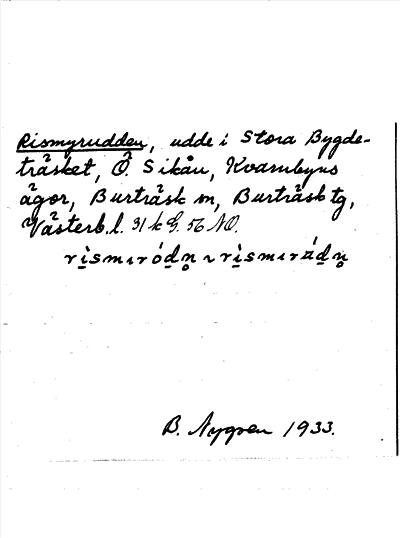 Rismyrudden, udde i Stora Bygde-
träsket, Ö. Sikån, Kvarnbyns
ägor, Burträsk sn, Burträsk tg,
Västerb. l. 31 k G. 56 NO.
B. Nygren 1933.